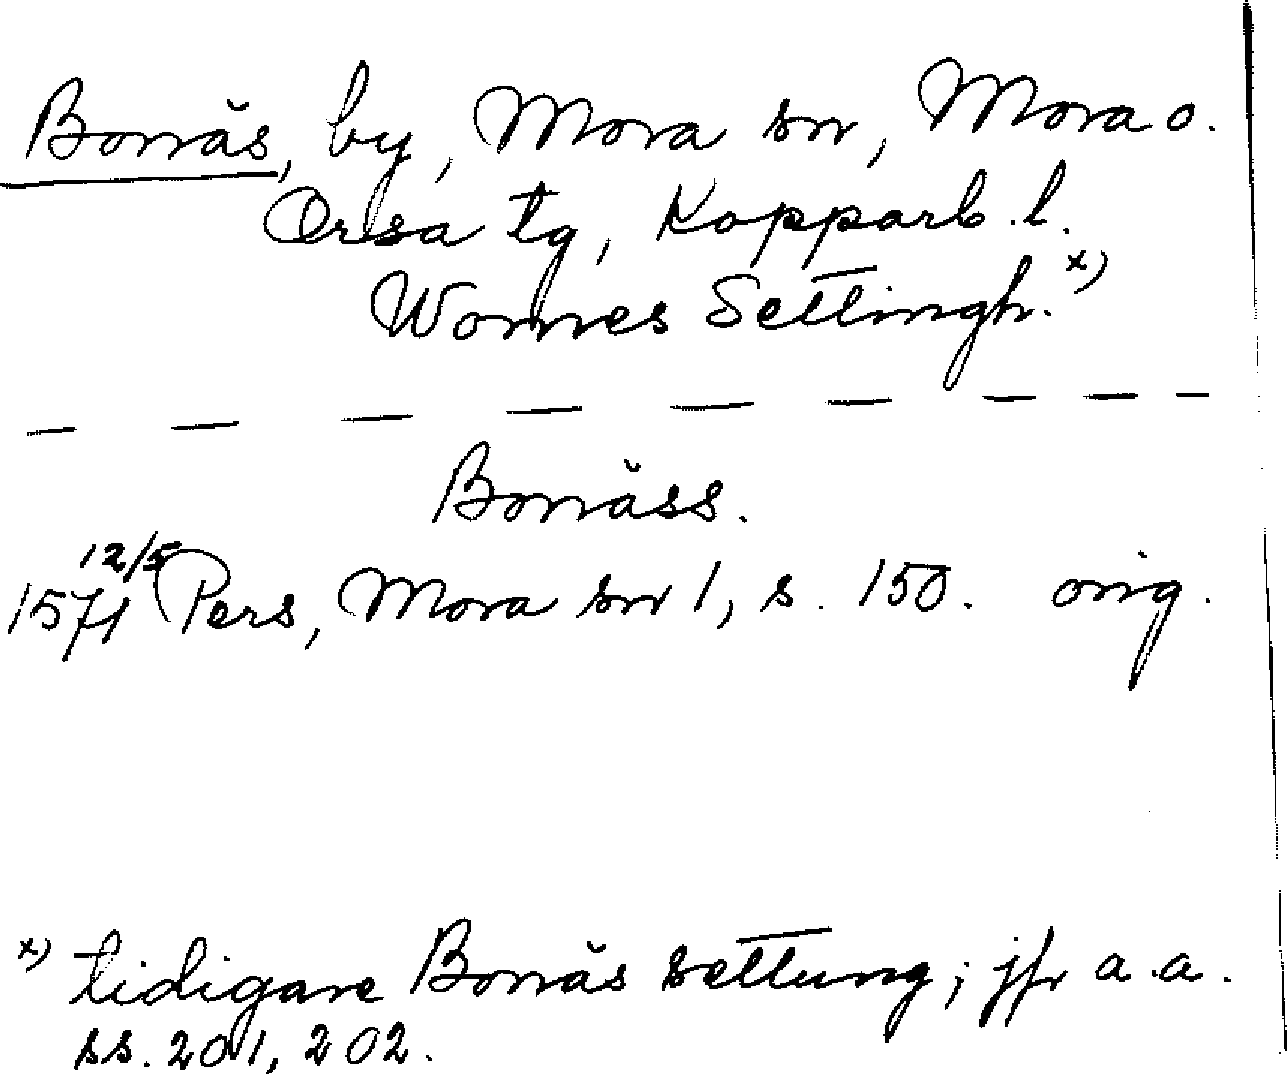 Bonäs, by, Mora sn, Mora o.
Orsa tg, Kopparb. l.
Womnes Settingh. x)
Bonäss.
12/5
1571 Pers, Mora sn 1, s. 150. orig.
x) tidigare Bonäs settung; jfr a.a.
ss. 201, 202.